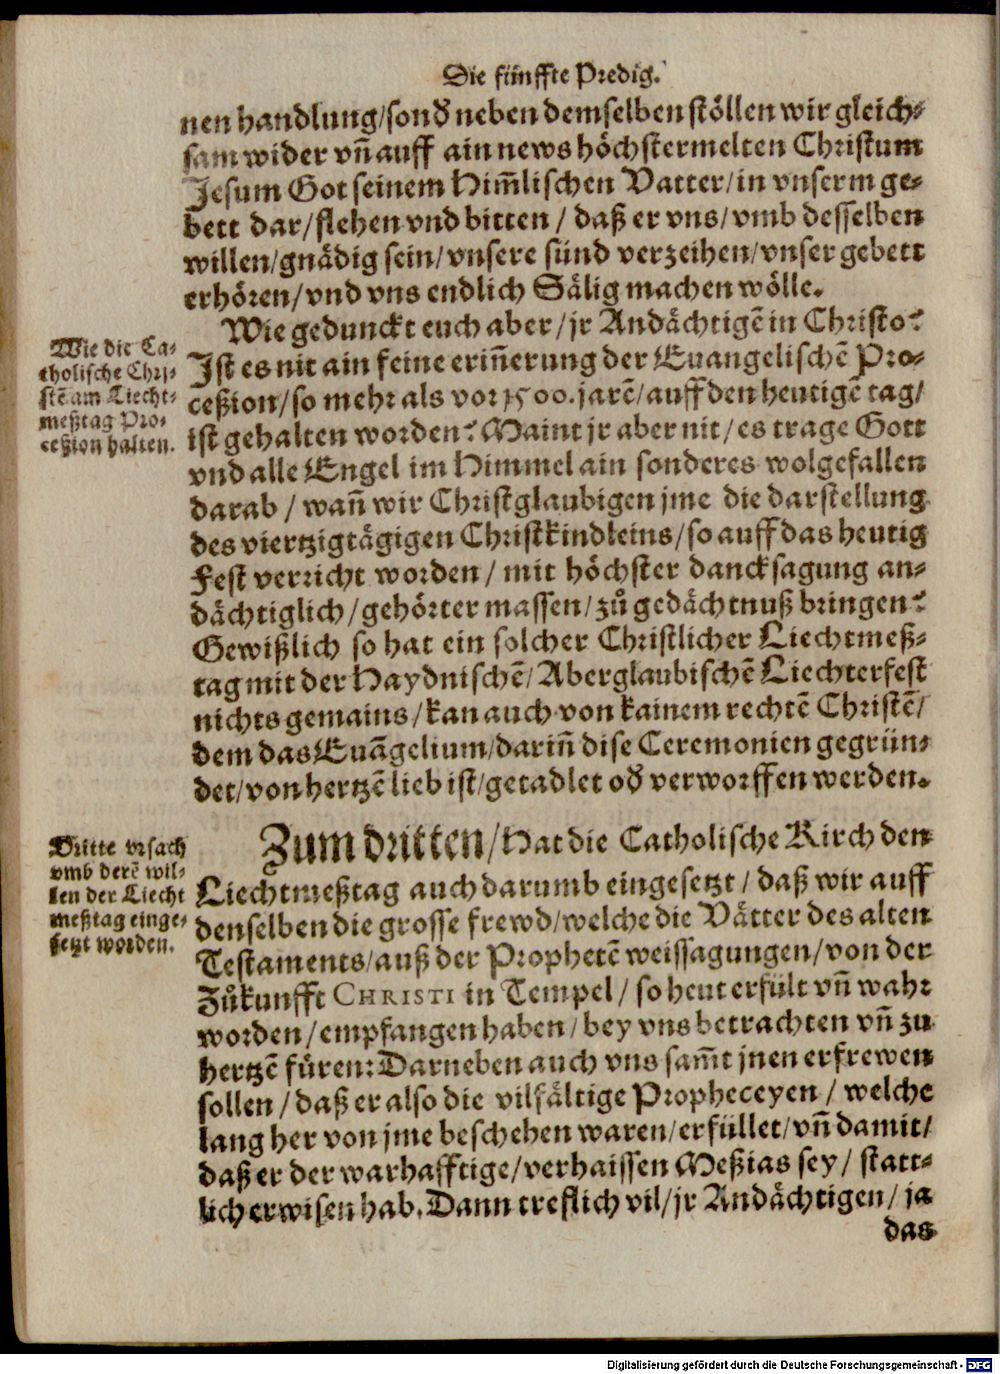 Die fünffte Predig.
nen handlung/sonđ neben demselben stöllen wir gleich-
sam wider vñ auff ain news höchstermelten Christum
Jesum Got seinem Him̃lischen Vatter/in vnserm ge-
bett dar/flehen vnd bitten / daß er vns/vmb desselben
willen/gnädig sein/vnsere sünd verzeihen/vnser gebett
erhören/vnd vns endlich Sälig machen wölle.
Wie geduncket euch aber/jr Andächtigẽ in Christo?
Ist es nit ain feine erin̄erung der Euangelischẽ Pro-
ceßion/so mehr als vor 1500. jarẽ/auff den heutigẽ tag/
ist gehalten worden? Maint jr aber nit/es trage Gott
vnd alle Engel im Himmel ain sonderes wolgefallen
darab / wañ wir Christglaubigen jme die darstellung
des viertzigtägigen Christkindleins/so auff das heutig
Fest verricht worden/ mit höchster dancksagung an-
dächtiglich/gehörter massen/zů gedächtnuß bringen?
Gewißlich so hat ein solcher Christlicher Liechtmeß-
tag mit der Haydnischẽ/Aberglaubischẽ Liechterfest
nichts gemains/kan auch von kainem rechtẽ Christẽ/
dem das Euãgelium/dariñ dise Ceremonien gegrün-
det/von hertzẽ lieb ist/getadlet ođ verworffen werden.
Wie die Ca-
tholische Chri-
stẽ am Liecht-
meßtag Pro-
ceßion halten.
Zum dritten/Hat die Catholische Kirch den
Liechtmeßtag auch darumb eingesetzt / daß wir auff
denselben die grosse frewd/welche die Vätter des alten
Testaments/auß der Prophetẽ weissagungen/von der
Zůkunfft CHRISTI in Tempel/ so heut erfült vñ wahr
worden/empfangen haben/bey vns betrachten vñ zu
hertzẽ füren: Darneben auch vns sam̃t jnen erfrewen
sollen / daß er also die vilfältige Propheceyen / welche
lang her von jme beschehen waren/erfüllet/vñ damit/
daß er der warhafftige/verhaissen Meßias sey/ statt-
lich erwisen hab. Dann treflich vil/jr Andächtigen/ ja
das
Dritte vrsach
vmb derẽ wil-
len der Liecht
meßtag einge-
setzt worden.
Digitalisierung gefördert durch die Deutsche Forschungsgemeinschaft - DFG